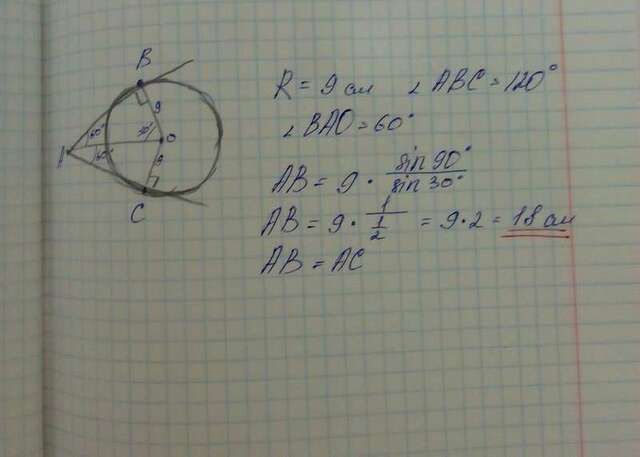 B
9
60°
30°
O
A
60°
9
C
R = 9 см ∠ABC = 120°
∠BAO = 60°
AB = 9 · sin 90° / sin 30°
AB = 9 · 1 / 1/2 = 9·2 = 18 см
AB = AC